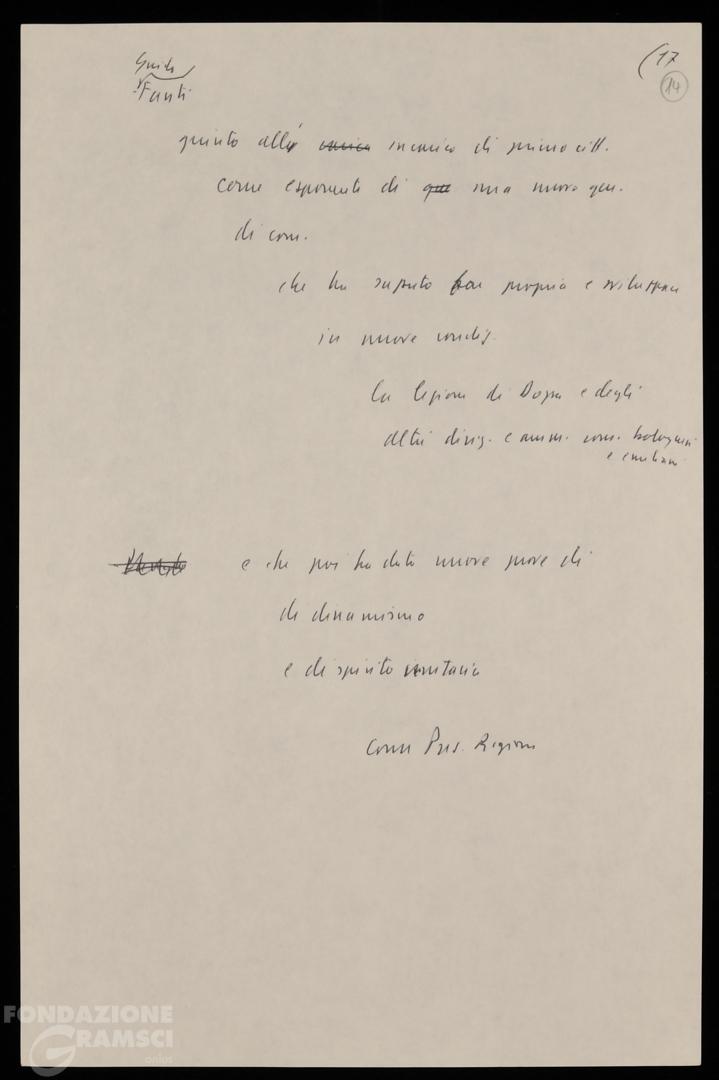 Guido
Fanti
(17
14
giunto all' incarico di primo citt.
come esponente di una nuova gen.
di com.
che ha saputo far propria e sviluppare
in nuove condiz.
la lezione di Dozza e degli
altri dirig. e amm. com. bolognesi
e emiliani
e che poi ha dato nuove prove di
di dinamismo
e di spirito unitario
come Pres. Regione
FONDAZIONE
GRAMSCI
onlus